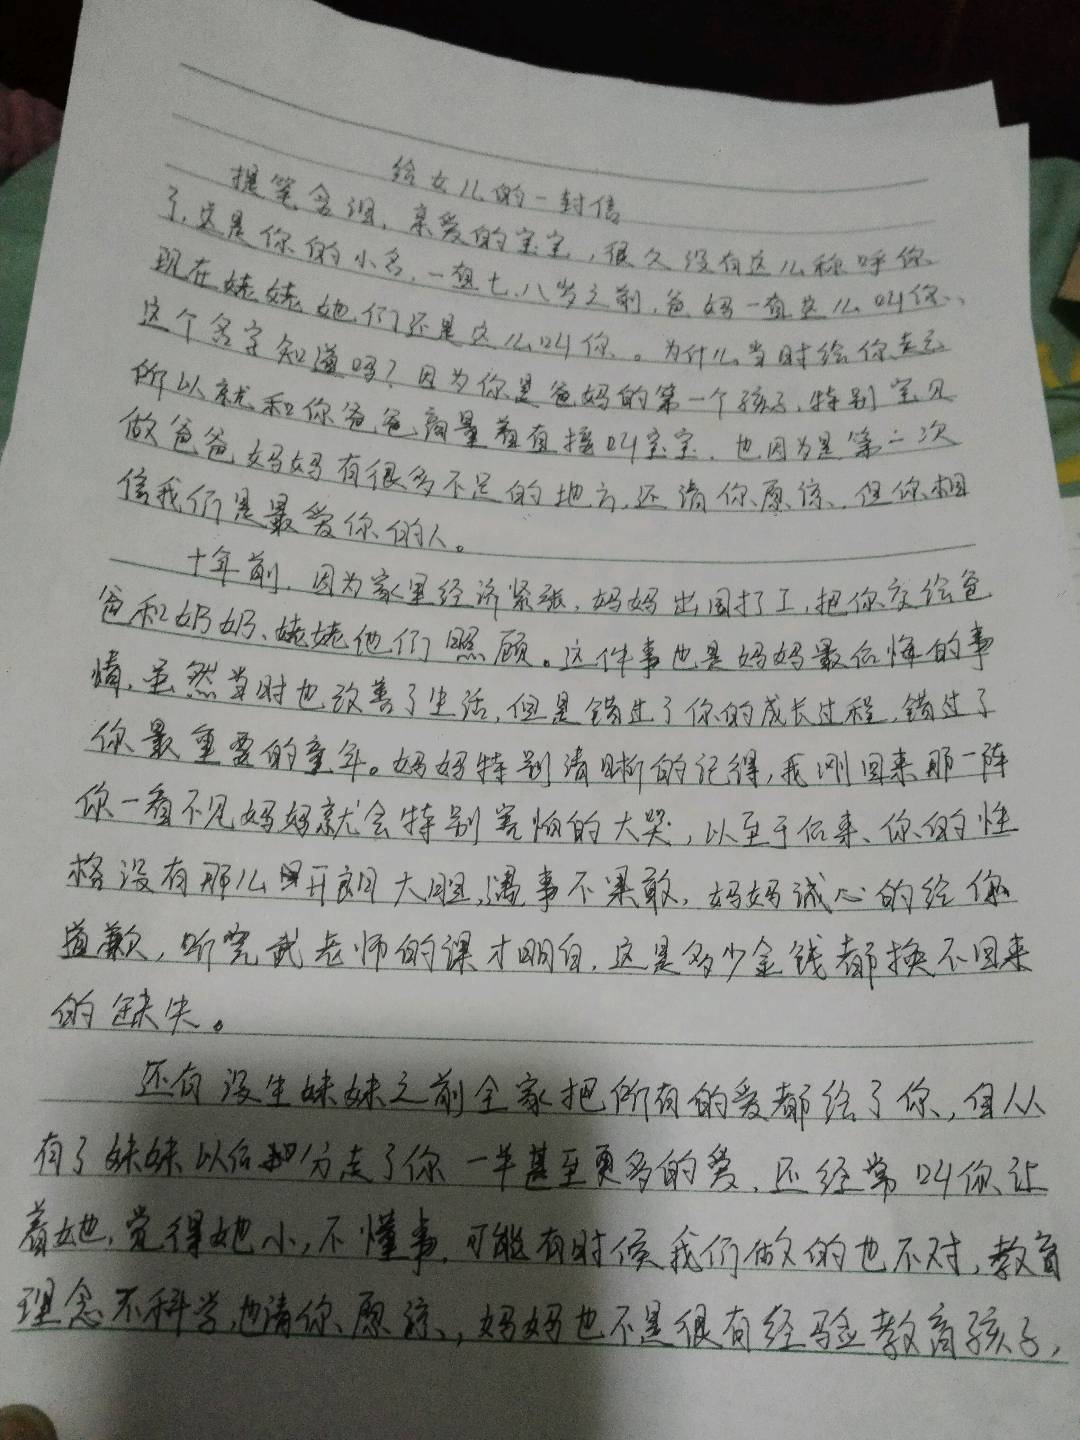 给女儿的一封信
提笔含泪,亲爱的宝宝,很久没有这么称呼你
了,这是你的小名,一直七、八岁之前,爸妈一直这么叫你、
现在姥姥她们还是这么叫你。为什么当时给你起
这个名字知道吗?因为你是爸妈的第一个孩子,特别宝贝
所以就和你爸爸商量着直接叫宝宝,也因为是第一次
做爸爸妈妈有很多不足的地方,还请你原谅、但你相
信我们是最爱你的人。
十年前,因为家里经济紧张,妈妈出国打工,把你交给爸
爸和奶奶、姥姥他们照顾。这件事也是妈妈最后悔的事
情,虽然当时也改善了生活,但是错过了你的成长过程,错过了
你最重要的童年。妈妈特别清晰的记得,我刚回来那一阵
你一看不见妈妈就会特别害怕的大哭,以至于后来、你的性
格没有那么开朗大胆,遇事不果敢,妈妈诚心的给你
道歉,听完武老师的课才明白,这是多少金钱都换不回来
的缺失。
还有没生妹妹之前全家把所有的爱都给了你,但从
有了妹妹以后分走了你一半甚至更多的爱,还经常叫你让
着她,觉得她小,不懂事,可能有时候我们做的也不对,教育
理念不科学,也请你原谅、,妈妈也不是很有经验教育孩子,